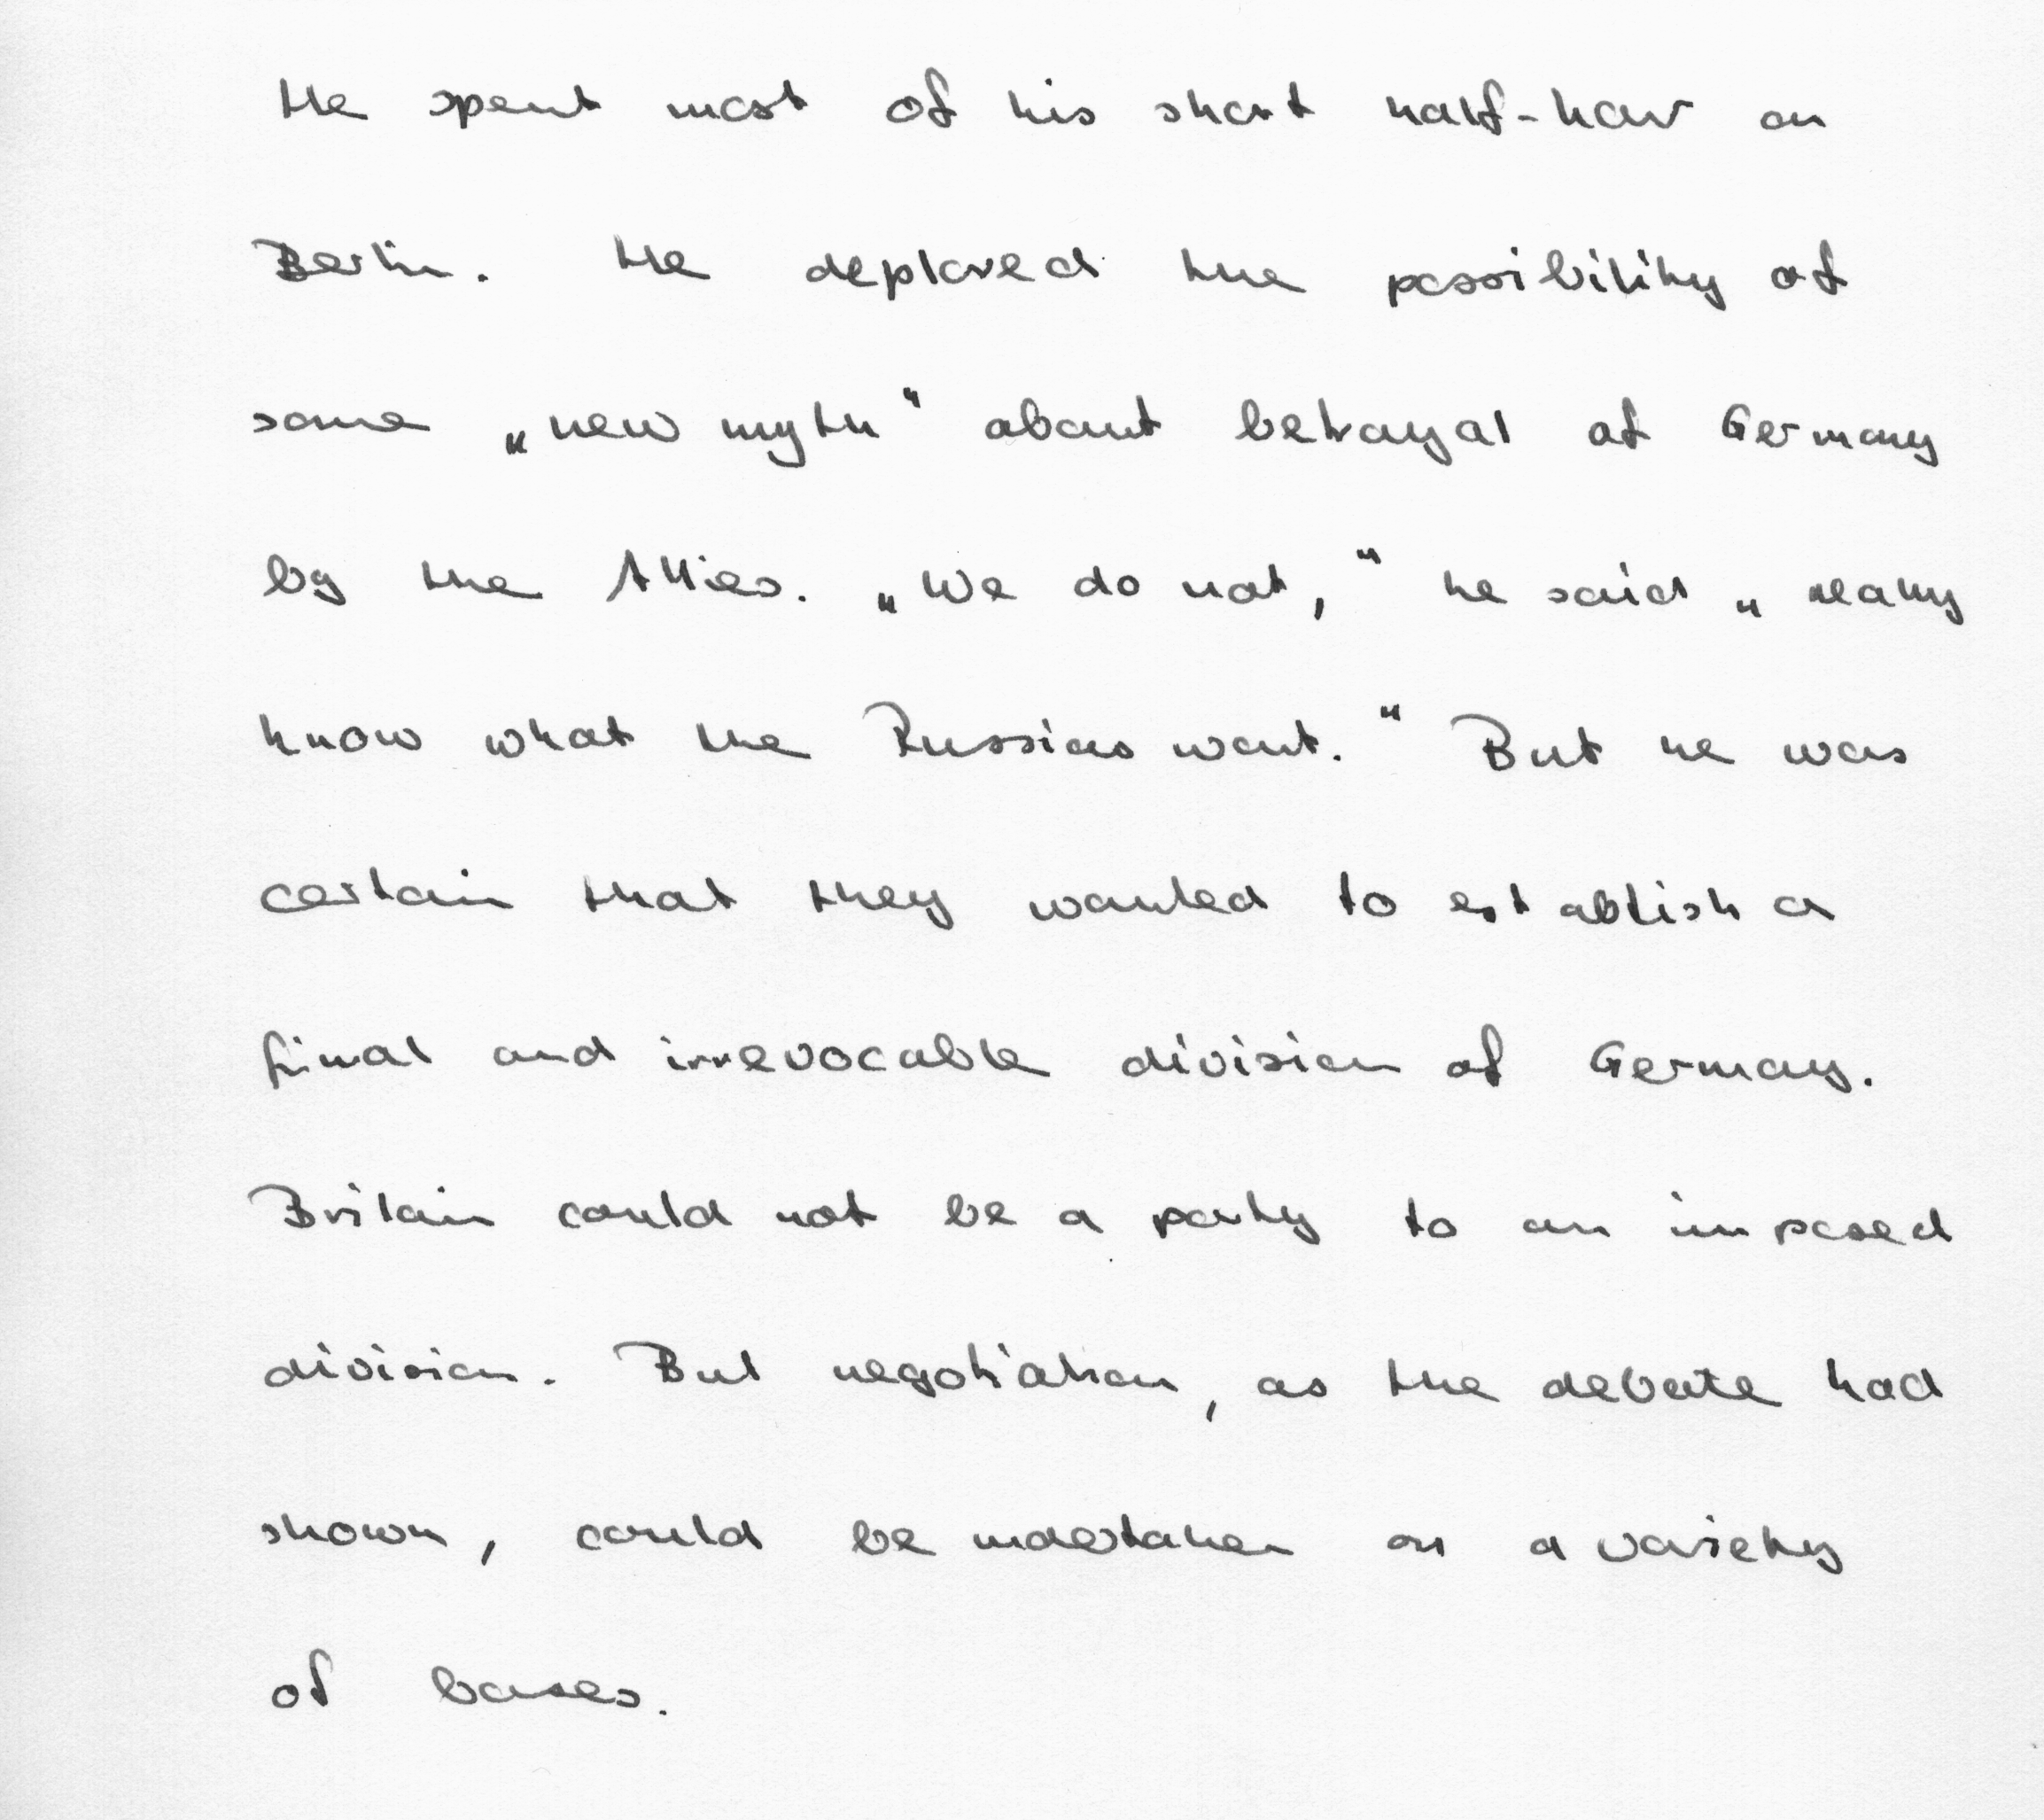 He spent most of his short half-hour on
Berlin. He deplored the possibility of
some „new myth" about betrayal of Germany
by the Allies. „We do not," he said „really
know what the Russias want." But he was
certain that they wanted to establish a
final and irrevocable division of Germany.
Britain could not be a party to an imposed
division. But negotiation, as the debate had
shown, could be undertaken on a variety
of bases.